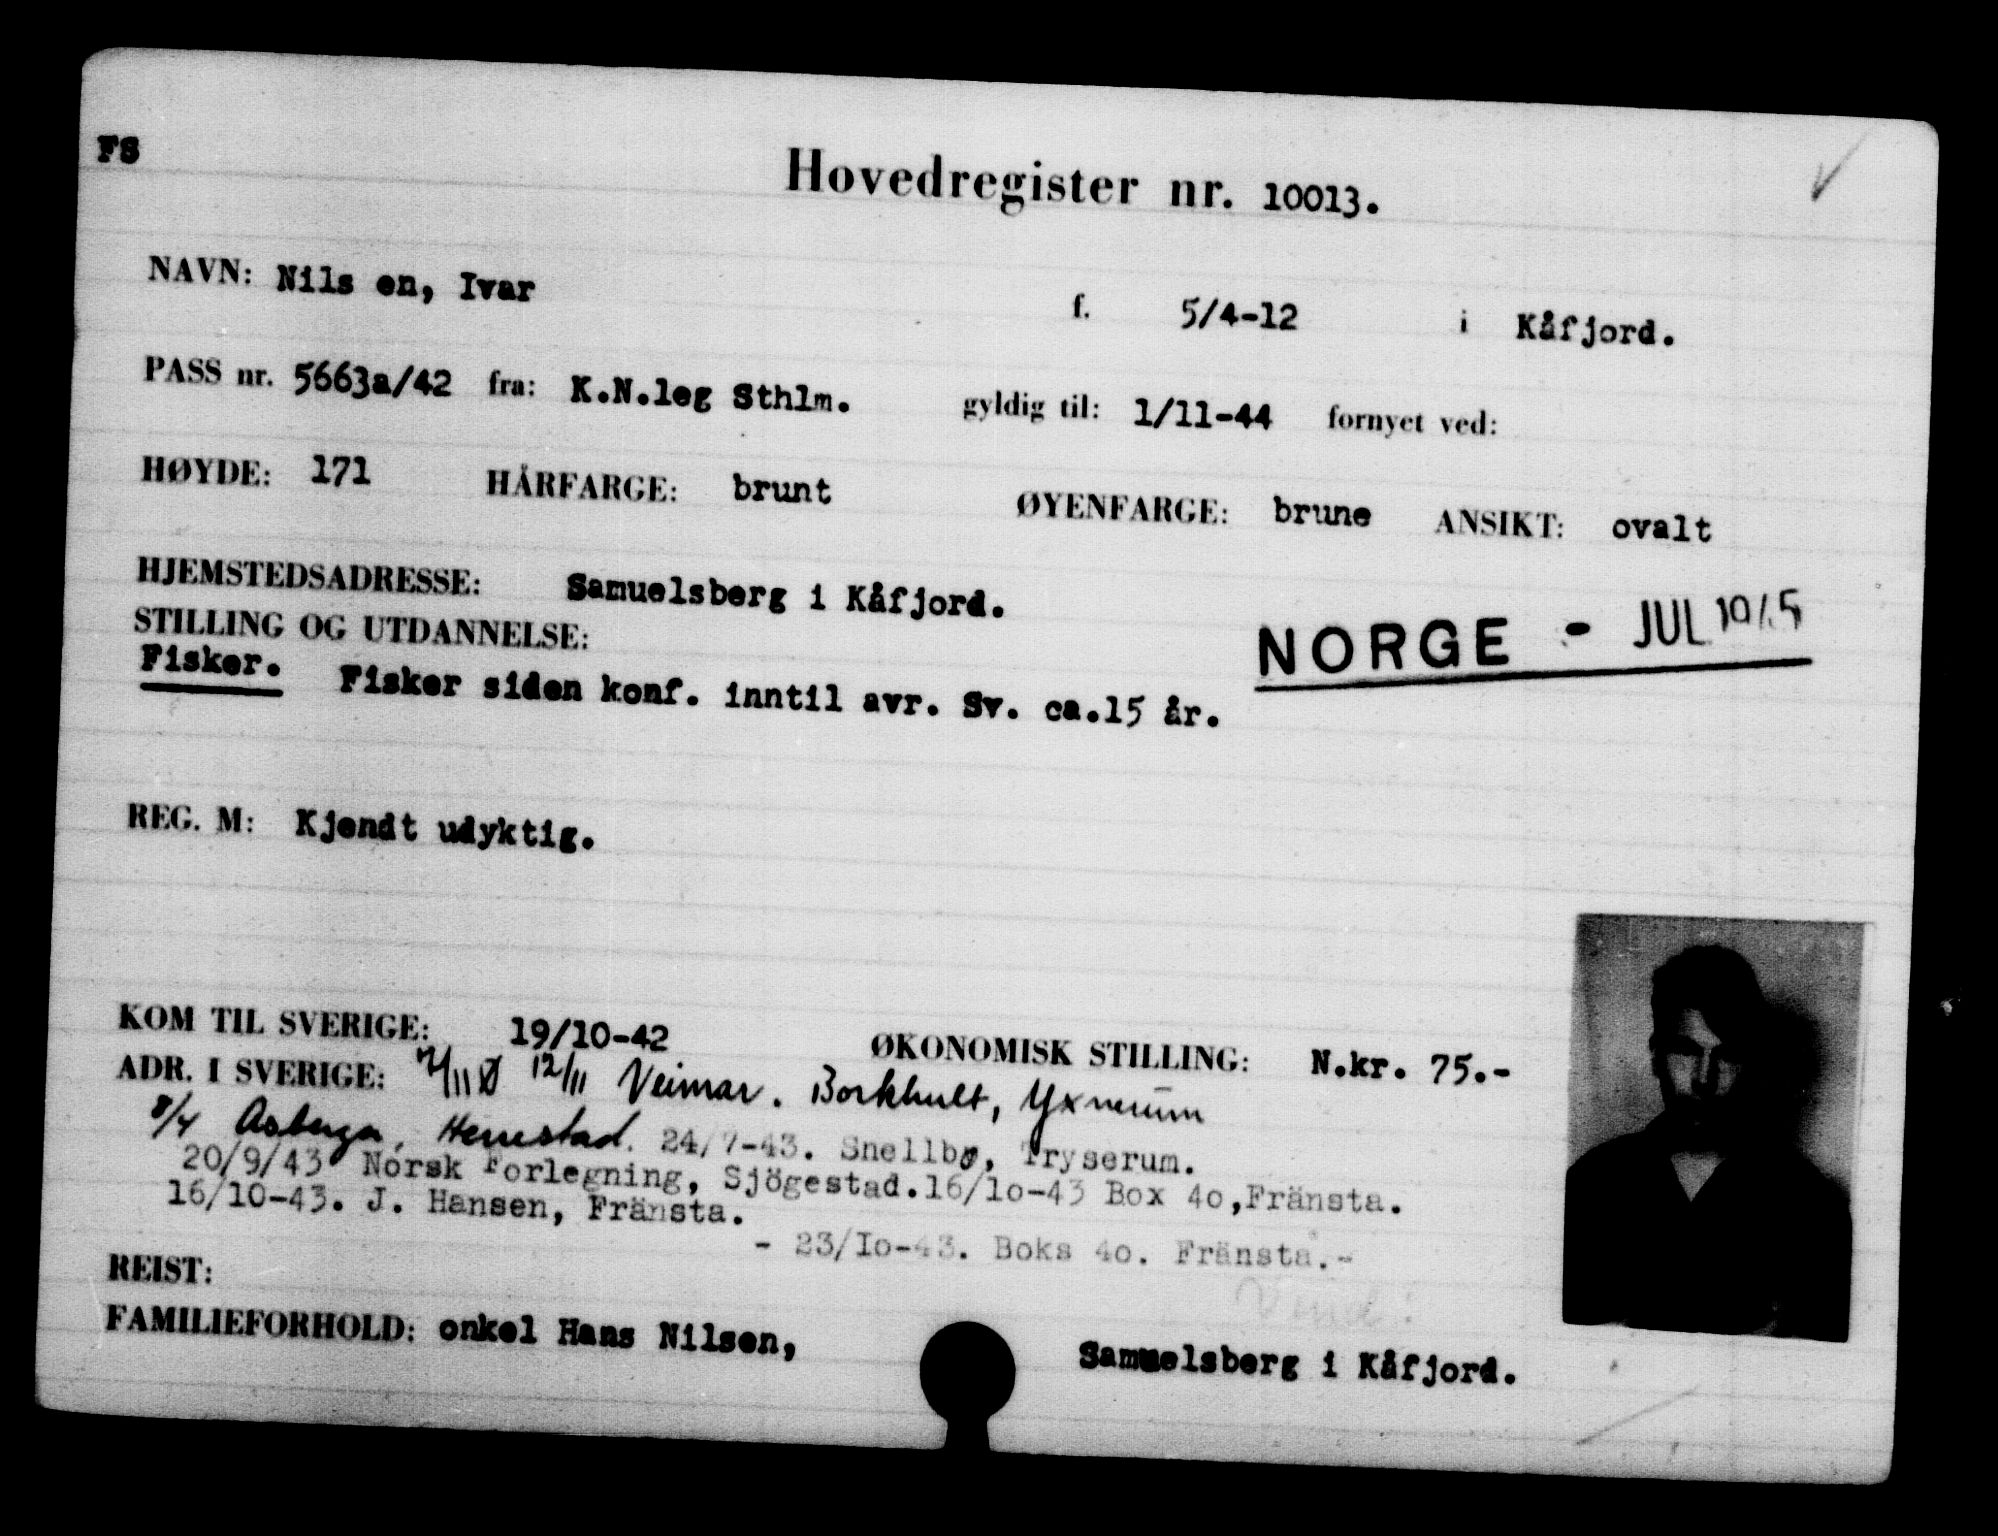 FS
Hovedregister nr. 10013.
NAVN: Nils en, Ivar f. 5/4-12 i Kåfjord.
PASS nr. 5663a/42 fra: K.N.leg Sthlm. gyldig til: 1/11-44 fornyet ved:
HØYDE: 171 HÅRFARGE: brunt ØYENFARGE: brune ANSIKT: ovalt
HJEMSTEDSADRESSE: Samuelsberg i Kåfjord.
NORGE - JUL 1945
STILLING OG UTDANNELSE:
Fisker. Fisker siden konf. inntil avr. Sv. ca.15 år.
REG. M: Kjendt udyktig.
KOM TIL SVERIGE: 19/10-42 ØKONOMISK STILLING: N.kr. 75.-
ADR. I SVERIGE: Ø 12/11 Veimar. Borkhult, Yxnerum
8/4 Asbenga, 24/7-43. Snellbo, Tryserum.
20/9/43 Norsk Forlegning, Sjögestad.16/10-43 Box 40,Fränsta.
16/10-43. J. Hansen, Fränsta.
- 23/10-43. Boks 40. Fränsta.-
REIST:
FAMILIEFORHOLD: onkel Hans Nilsen, Samuelsberg i Kåfjord.